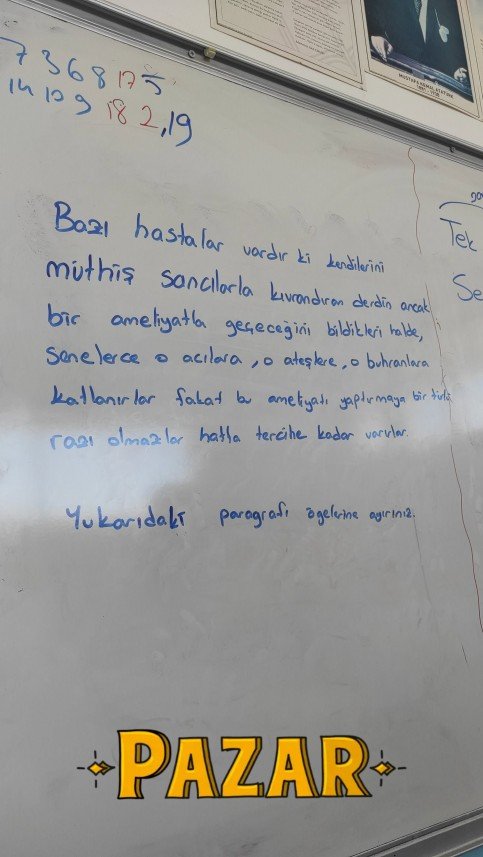 7 3 6 8 17 5
14 10 9 18 2, 19
MUSTAFA KEMAL ATATÜRK
1881 - 1938
Bazı hastalar vardır ki kendilerini
müthiş sancılarla kıvrandıran derdin ancak
bir ameliyatla geçeceğini bildikleri halde,
senelerce o acılara, o ateşlere, o buhranlara
katlanırlar fakat bu ameliyatı yaptırmaya bir türlü
razı olmazlar hatta tercihe kadar varırlar.
Yukarıdaki paragrafı ögelerine ayırınız.
Tek
Se
PAZAR